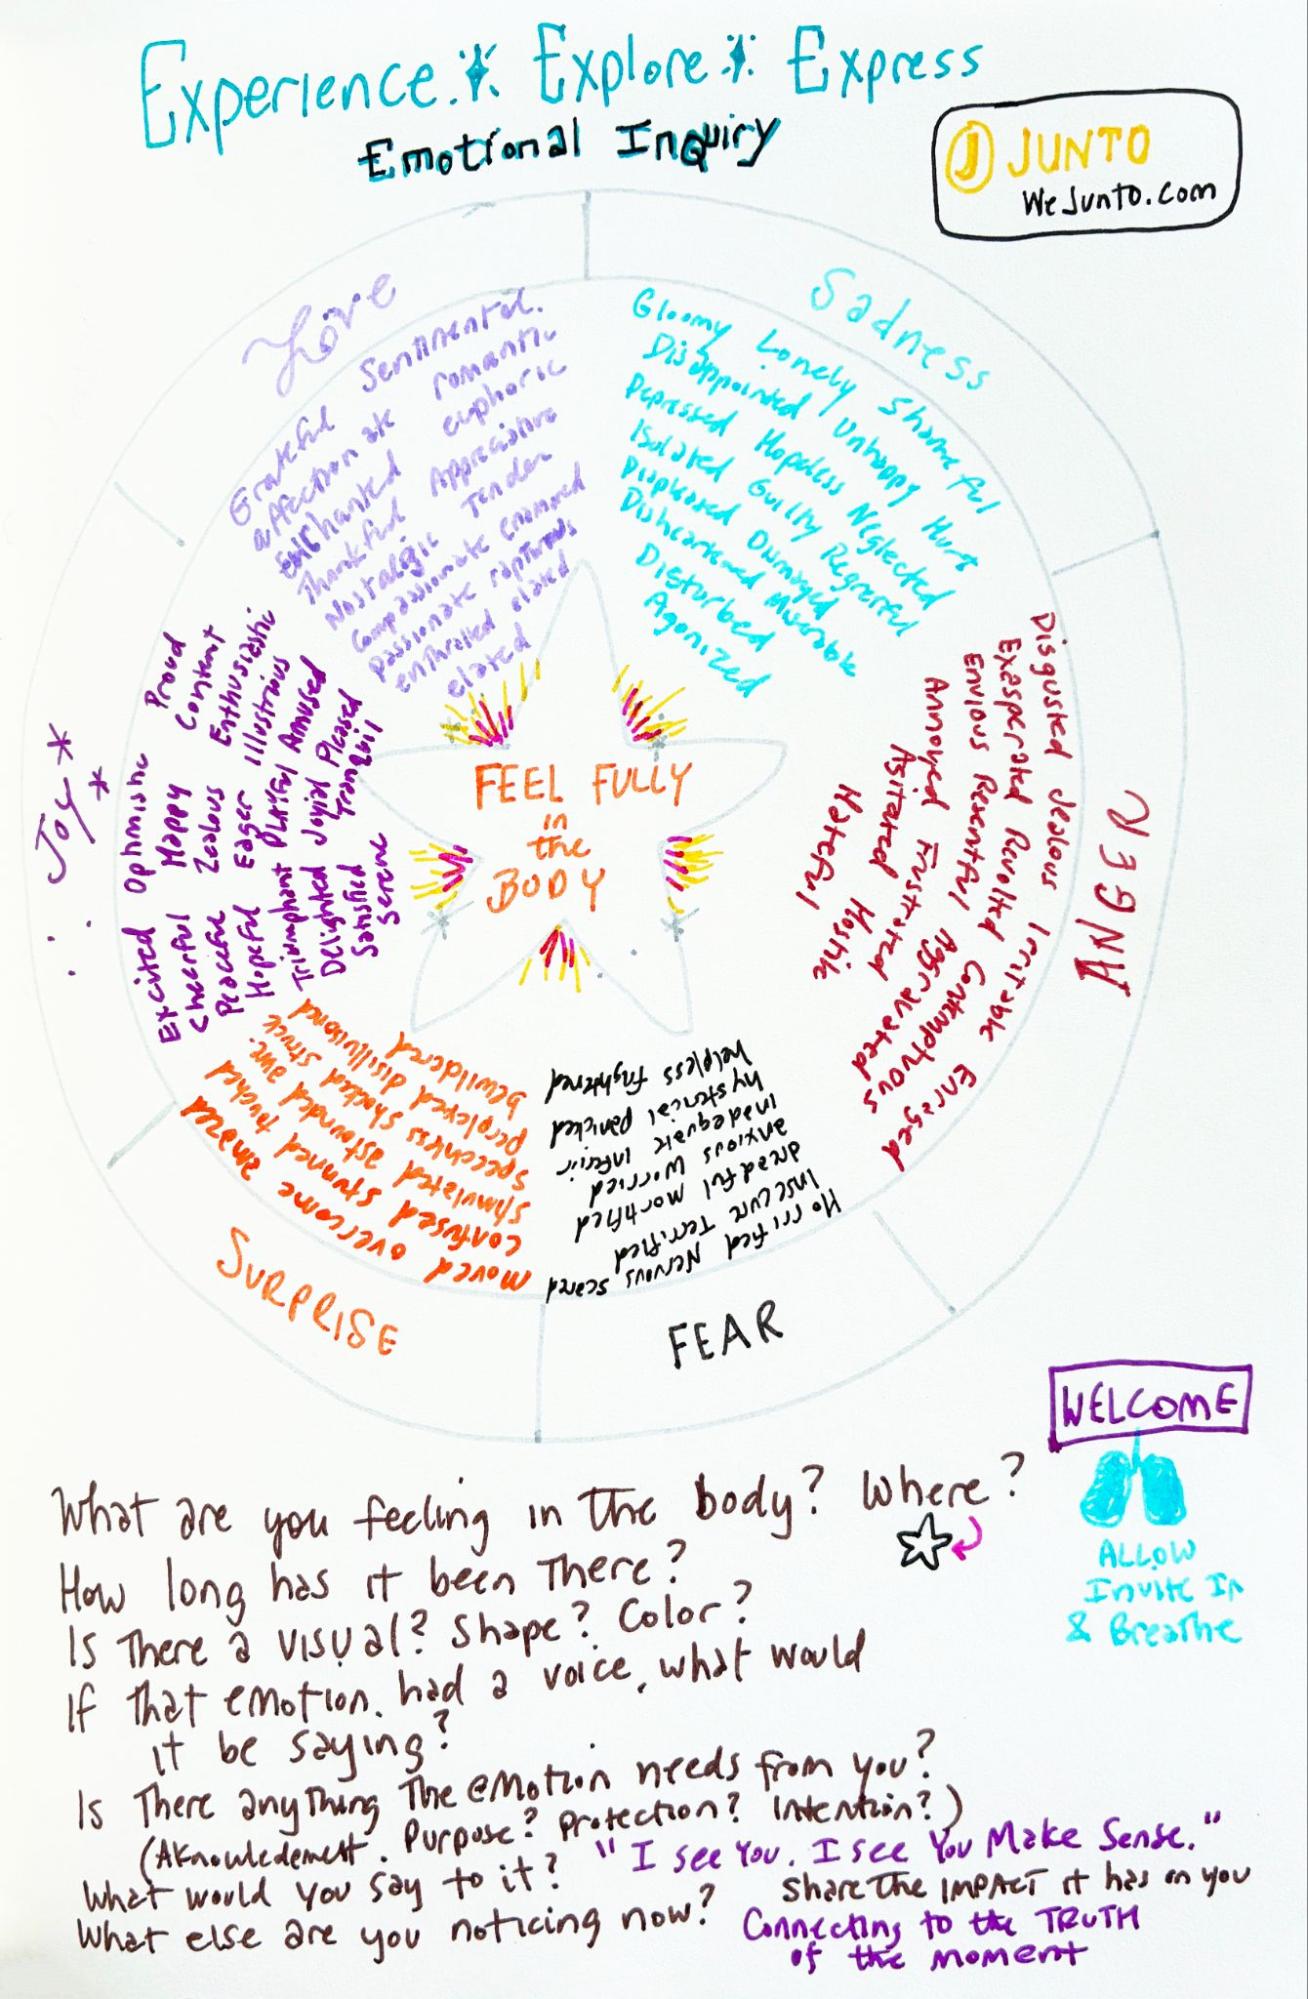 Experience Explore Express
Emotional Inquiry
J JUNTO
WeJunto.com
Love
Sentimental.
Grateful romantic
affectionate euphoric
Enchanted Appreciative
Thankful Tender
Nostalgic enamored
Compassionate rapturous
passionate elated
enthralled
elated
Sadness
Gloomy Lonely Shameful
Disappointed Unhappy Hurt
Depressed Hopeless Neglected
Isolated Guilty Regretful
Displeased Damaged
Disheartened Miserable
Disturbed
Agonized
ANGER
Disgusted Jealous Irritable Enraged
Exesperated Revolted Contemptuous
Envious Resentful Aggravated
Annoyed Frustrated
Agitated Hostile
Hateful
FEAR
Horrified Nervous scared
Insecure Terrified
dreadful mortified
anxious worried
inadequate inferior
hysterical panicked
helpless frightened
SURPRISE
moved overcome amazed
confused stunned touched
stimulated astounded awe.
speechless shocked struck
perplexed disillusioned
bewildered
Joy
Proud
Content
Enthusiastic
Illustrious
Amused
Pleased
Tranquil
Excited
Happy
Zealous
Eager
Playful
Jovial
Cheerful
Peaceful
Hopeful
Triumphant
Delighted
Satisfied
Serene
FEEL FULLY
in
the
BODY
WELCOME
ALLOW
Invite In
& Breathe
What are you feeling in the body? Where?
How long has it been There?
Is There a visual? Shape? Color?
If that emotion. had a voice, what would
it be saying?
Is There anything The emotion needs from you?
(Aknowledement. Purpose? Protection? Intention?)
What would you say to it? "I see You. I see You Make Sense."
Share The IMPACT it has on you
What else are you noticing now? Connecting to the TRUTH
of the moment